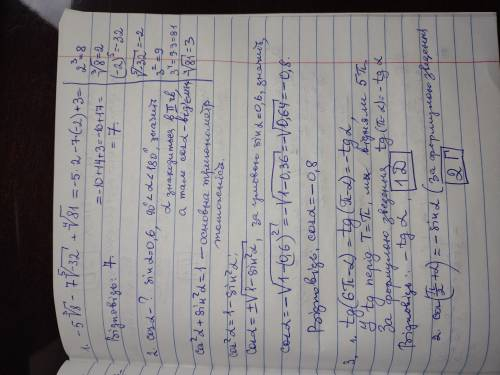 1. -5∛8 - 7⁵√-32 + ⁴√81 = -5·2 - 7·(-2) + 3 =
= -10 + 14 + 3 = -10 + 17 =
= 7.
Відповідь: 7.
2³ = 8
∛8 = 2
(-2)⁵ = -32
⁵√-32 = -2
3² = 9
3⁴ = 9·9 = 81
⁴√81 = 3
2. cosα - ? sinα = 0,6, 90° < α < 180°, значить
α знаходиться в II чв,
а там cosα - від'ємн.
cos²α + sin²α = 1 - основна тригонометр.
тотожність
cos²α = 1 - sin²α;
cosα = ±√1 - sin²α, за умовою sinα = 0,6, значить,
cosα = -√1 - (0,6)² = -√1 - 0,36 = -√0,64 = -0,8.
Відповідь: cosα = -0,8
3. 1. tg(6π - α) = tg(π - α) = -tgα,
у tg період T = π, ми відняли 5π.
За формулою зведення tg(π - α) = -tgα
Відповідь: -tgα, 1Д
2. cos(π/2 + α) = -sinα (за формулою зведення)
2Г